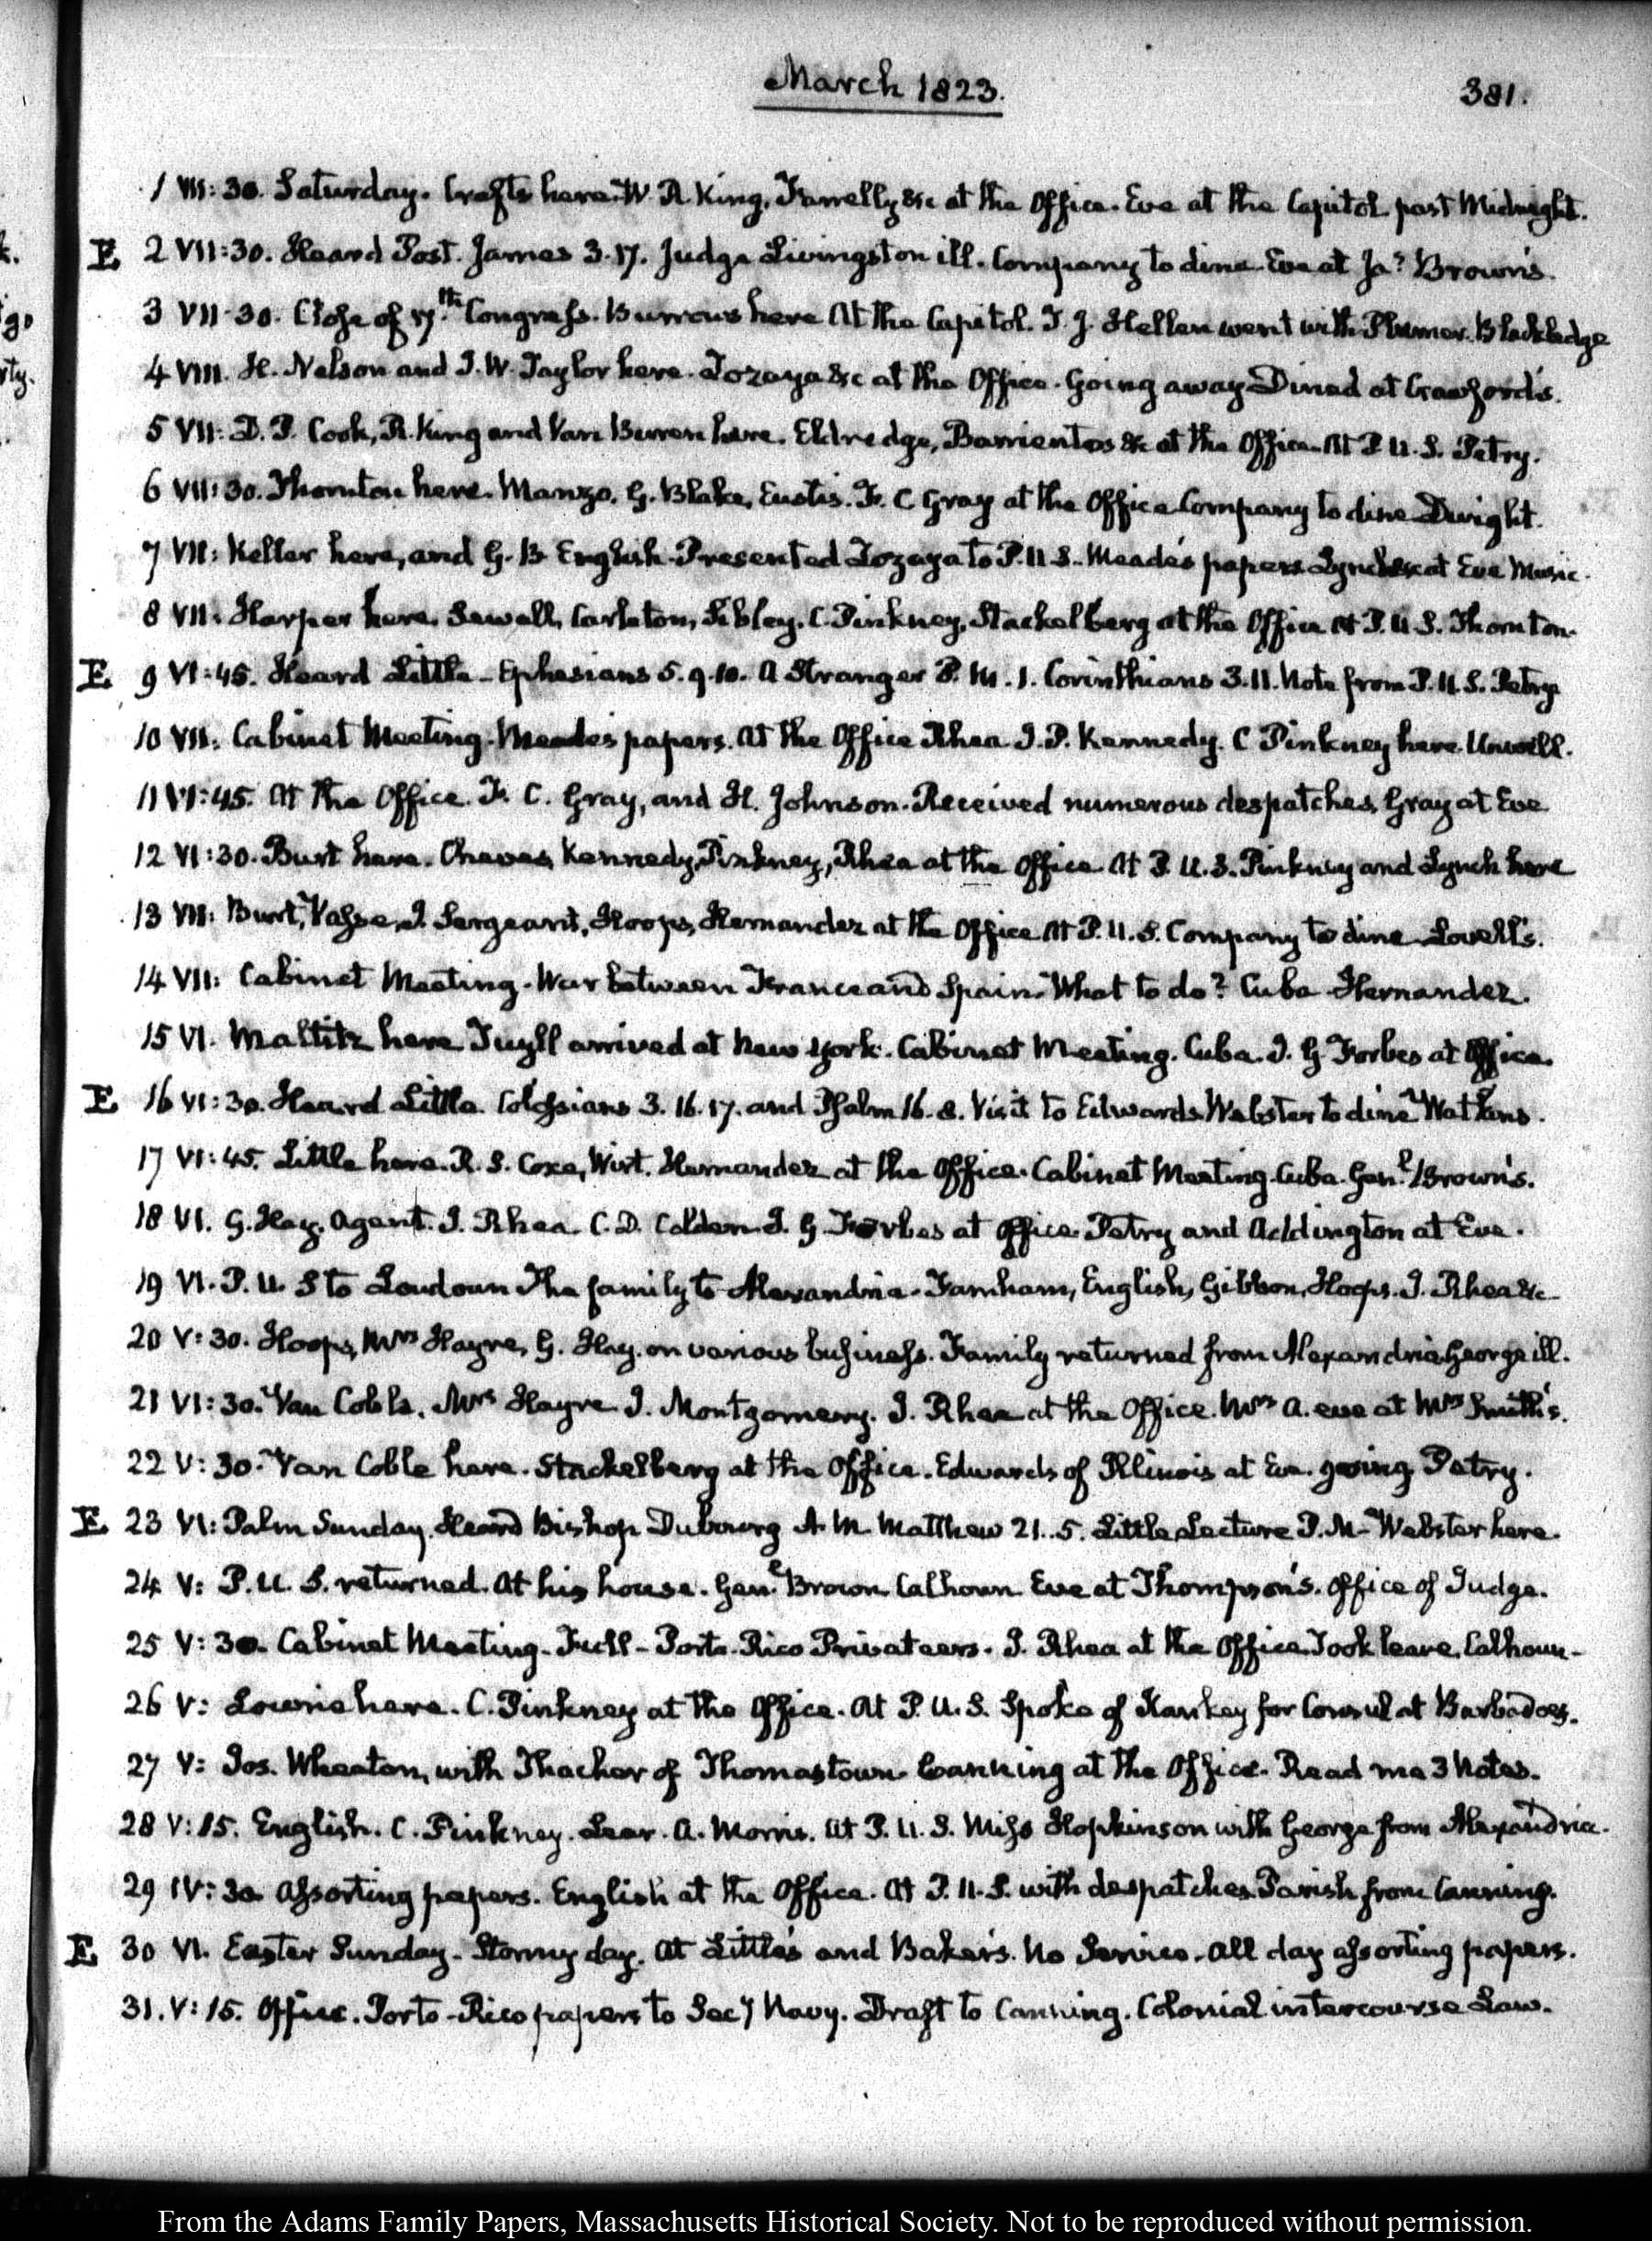 March 1823.
381.
1 VII:30. Saturday. Crafts here. W. R. King, Farrelly &c at the Office. Eve at the Capitol past Midnight.
E 2 VII:30. Heard Post. James 3.17. Judge Livingston ill. Company to dine. Eve at Jas. Brown's.
3 VII-30. Close of 17th. Congress. Burrows here At the Capitol. T. J. Hellen went with Plumer. Blackledge
4 VIII. H. Nelson and J. W. Taylor here. Lozaya &c at the Office. Going away Dined at Crawford's.
5 VII: D. P. Cook, R. King and Van Buren here. Eldredge, Barrientos &c at the Office. At P. U. S. Petry.
6 VII:30. Thornton here. Manzo, G. Blake, Eustis. F. C Gray at the Office Company to dine Dwight.
7 VII: Keller here, and G. B. English. Presented Lozaya to P. U. S. Meade's papers Lynch &c at Eve Music.
8 VII: Harper here. Sewall, Carleton, Sibley. C. Pinkney, Stackelberg at the Office At P. U. S. Thornton.
E 9 VI:45. Heard Little—Ephesians 5.9.10. A Stranger P. M. 1. Corinthians 3.11. Note from P. U. S. Petry
10 VII: Cabinet Meeting. Meade's papers. At the Office Rhea. J. P. Kennedy. C Pinkney here. Unwell.
11 VI:45. At the Office. F. C. Gray, and H. Johnson. Received numerous despatches. Gray at Eve
12 VI:30. Burt here. Cheves, Kennedy, Pinkney, Rhea at the Office. At P. U. S. Pinkney and Lynch here
13 VII: Burt, Vasse, J. Sergeant, Hoops, Hernandez at the Office At P. U. S. Company to dine. Lovell's.
14 VII: Cabinet Meeting. War between France and Spain. What to do? Cuba. Hernandez.
15 VI. Maltitz here Tuyll arrived at New York. Cabinet Meeting. Cuba. J. G Forbes at Office.
E 16 VI:30. Heard Little. Colossians 3.16.17. and Psalm 16.8. Visit to Edwards. Webster to dine. Watkins.
17 VI:45. Little here. R. S. Coxe, Wirt. Hernandez at the Office. Cabinet Meeting. Cuba. Genl. Brown's.
18 VI. G. Hay. Agent. J. Rhea. C. D. Colden. J. G. Forbes at Office. Petry and Addington at Eve.
19 VI. P. U. S to Loudoun The family to Alexandria. Farnham, English, Gibbon, Hoops. J. Rhea &c
20 V:30. Hoops, Mrs Hayne, G. Hay. on various business. Family returned from Alexandria. George ill.
21 VI:30. Van Coble. Mrs Hayne J. Montgomery. J. Rhea at the Office. Mrs A. eve at Mrs Smith's.
22 V:30. Van Coble here. Stackelberg at the Office. Edwards of Illinois at Eve. going Petry.
E 23 VI: Palm Sunday. Heard Bishop Dubourg A. M. Matthew 21..5. Little Lecture P. M. Webster here.
24 V: P. U. S. returned. At his house. Genl Brown Calhoun Eve at Thompson's. Office of Judge.
25 V:30. Cabinet Meeting. Tuyll—Porto-Rico Privateers. J. Rhea at the Office Took leave. Calhoun.
26 V: Lowrie here. C. Pinkney at the Office. At P. U. S. Spoke of Kankey for Consul at Barbadoes.
27 V: Jos. Wheaton, with Thacher of Thomastown. Canning at the Office. Read me 3 Notes.
28 V:15. English. C. Pinkney. Lear. A. Morris. At P. U. S. Miss Hopkinson with George from Alexandria.
29 IV:30 Assorting papers. English at the Office. At P. U. S. with despatches. Parish from Canning.
E 30 VI. Easter Sunday. Stormy day. At Little's and Baker's. No Service. All day assorting papers.
31. V:15. Office. Porto-Rico papers to Secy Navy. Draft to Canning. Colonial intercourse Law.
From the Adams Family Papers, Massachusetts Historical Society. Not to be reproduced without permission.